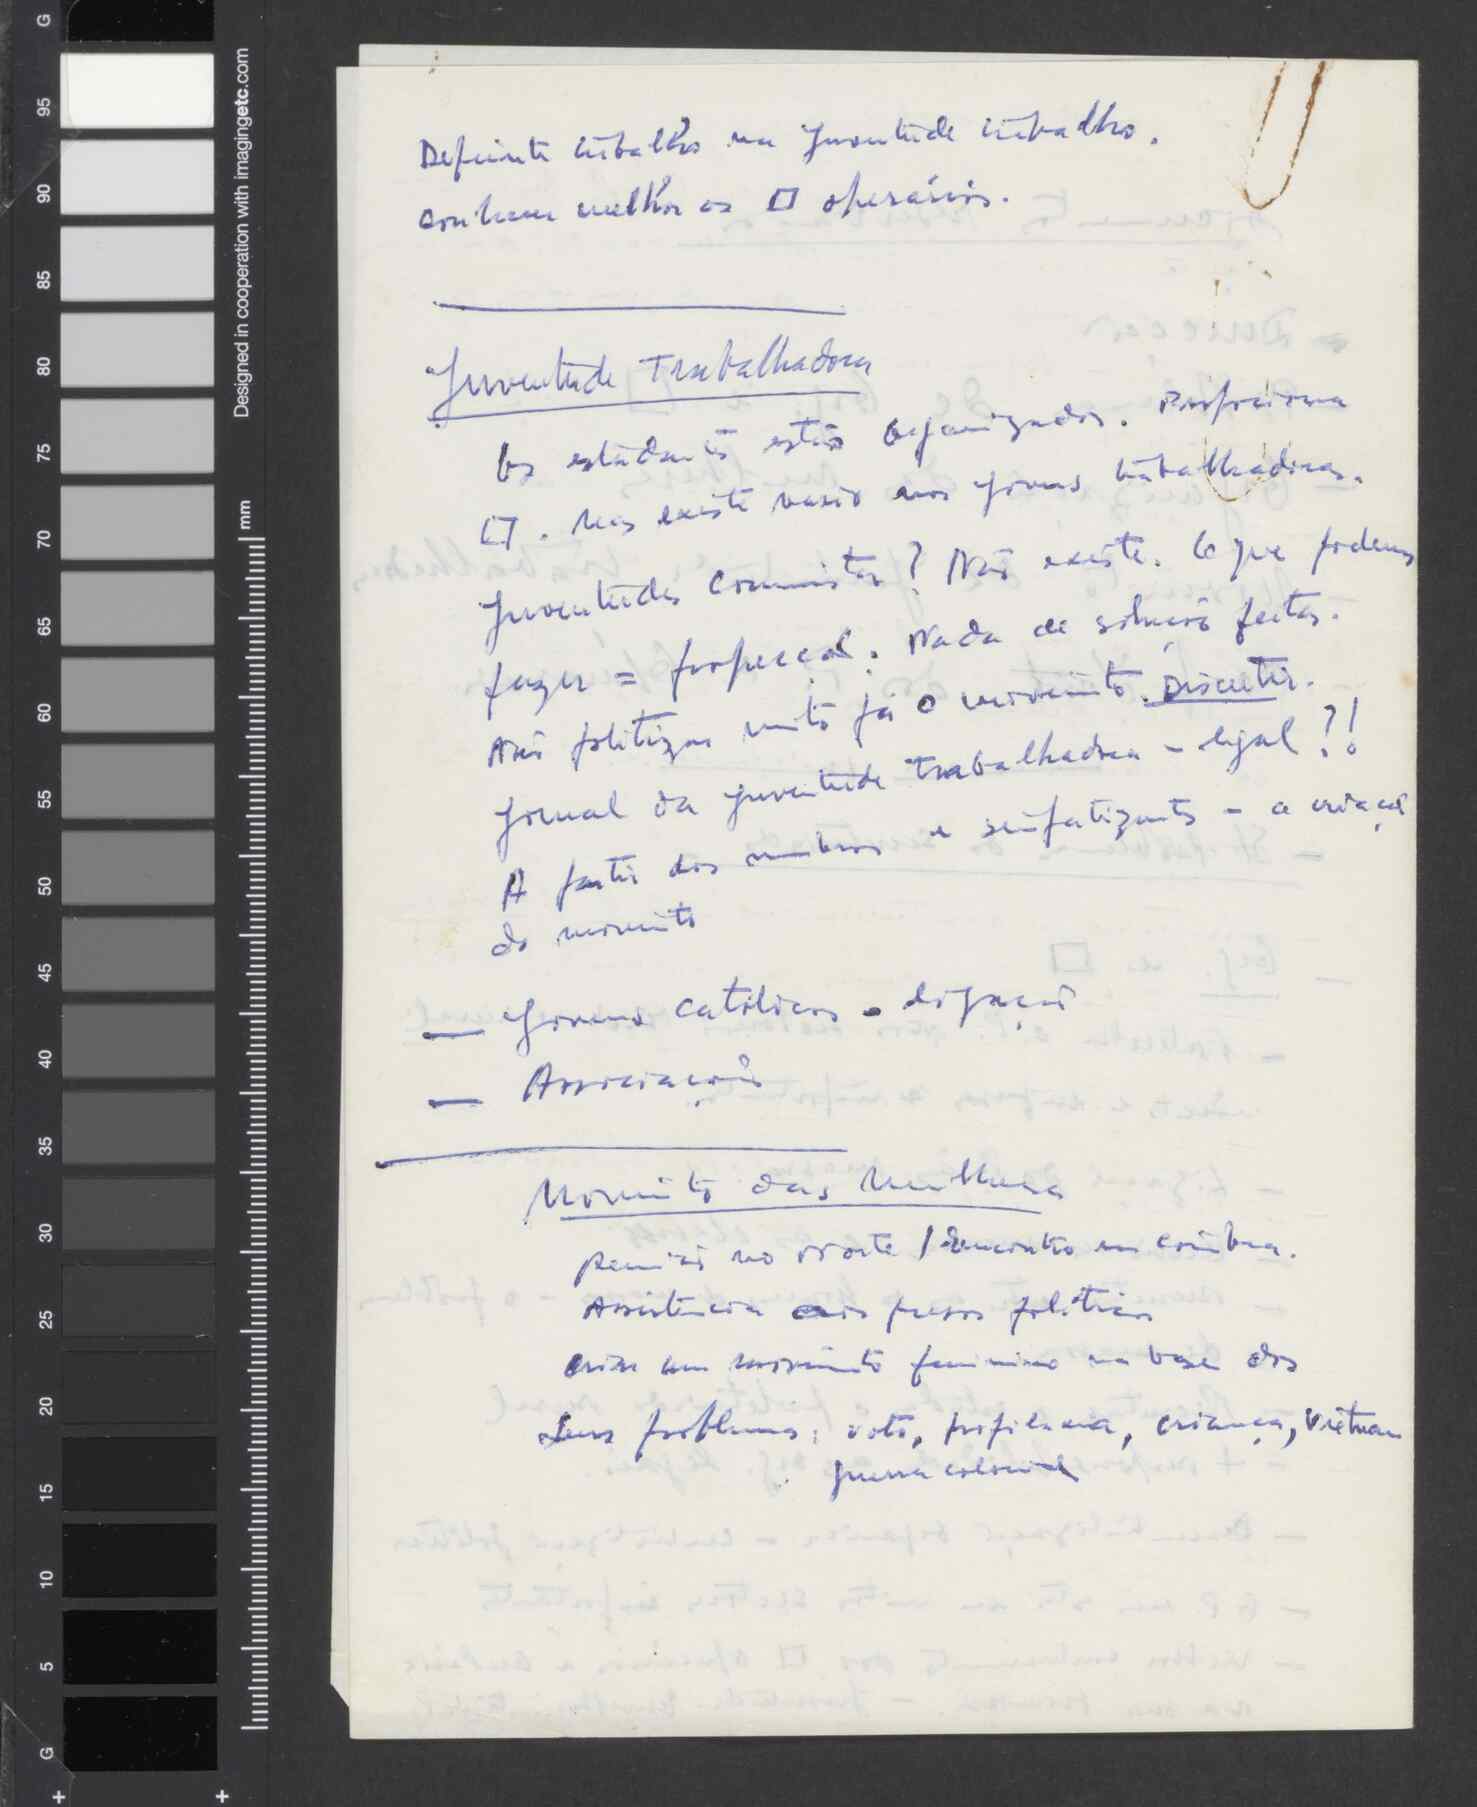 G
95
90
85
80
75
70
65
60
55
50
45
40
35
30
25
20
15
10
5
G
Designed in cooperation with imagingetc.com
mm
Deficiente trabalho na juventude trabalho.
conhecer melhor os □ operários.
Juventude Trabalhadora
Os estudantes estão organizados.
□. Mas existe vasio nos jovens trabalhadores.
Juventudes comunistas? Não existe. O que podemos
fazer = prospecção. Nada de solução feitas.
Não politizar muito já o movimento. Discutir.
Jornal da juventude trabalhadora - legal?!
A partir dos membros e simpatizantes - a criação
do movimento
— Jovens católicos - ligação
— Associações
Movimento das Mulheres
Reunião no Norte / Encontro em Coimbra.
Assistência aos presos políticos
criar um movimento feminino na base dos
seus problemas: voto, criança, Vietnam
guerra colonial